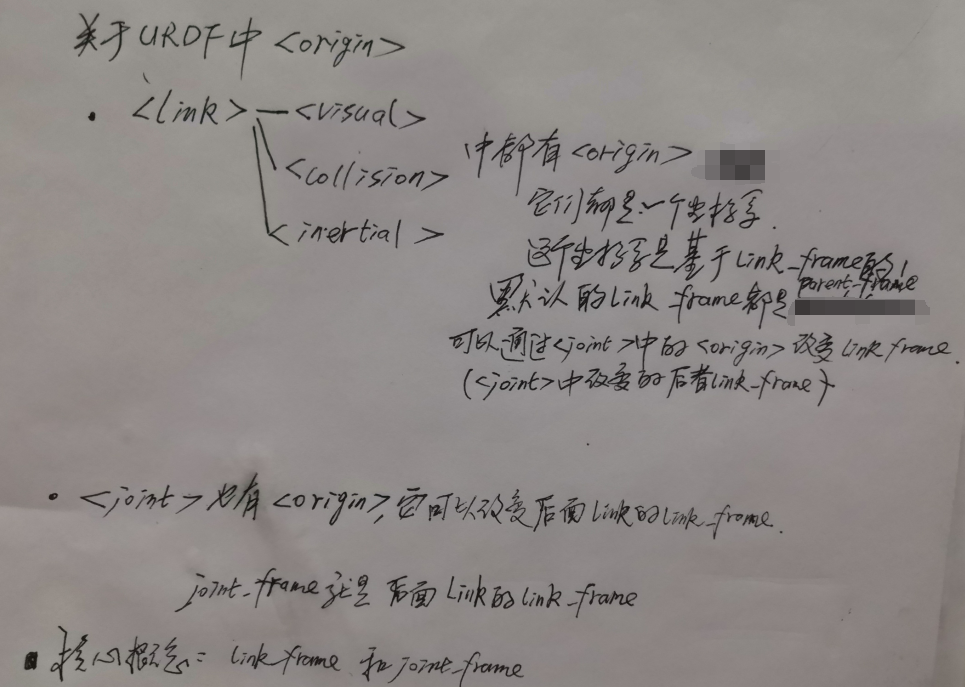 关于URDF中<origin>
<link>—<visual>
<collision>
<inertial>
中都有<origin>
它们都是一个坐标系.
这个坐标系是基于link_frame的!
默认的link_frame都是parent_frame
可以通过<joint>中的<origin>改变link frame.
(<joint>中改变的后者link_frame)
<joint>也有<origin>,它可以改变后面link的link_frame.
joint_frame就是后面link的link_frame
核心概念: link_frame 和joint_frame